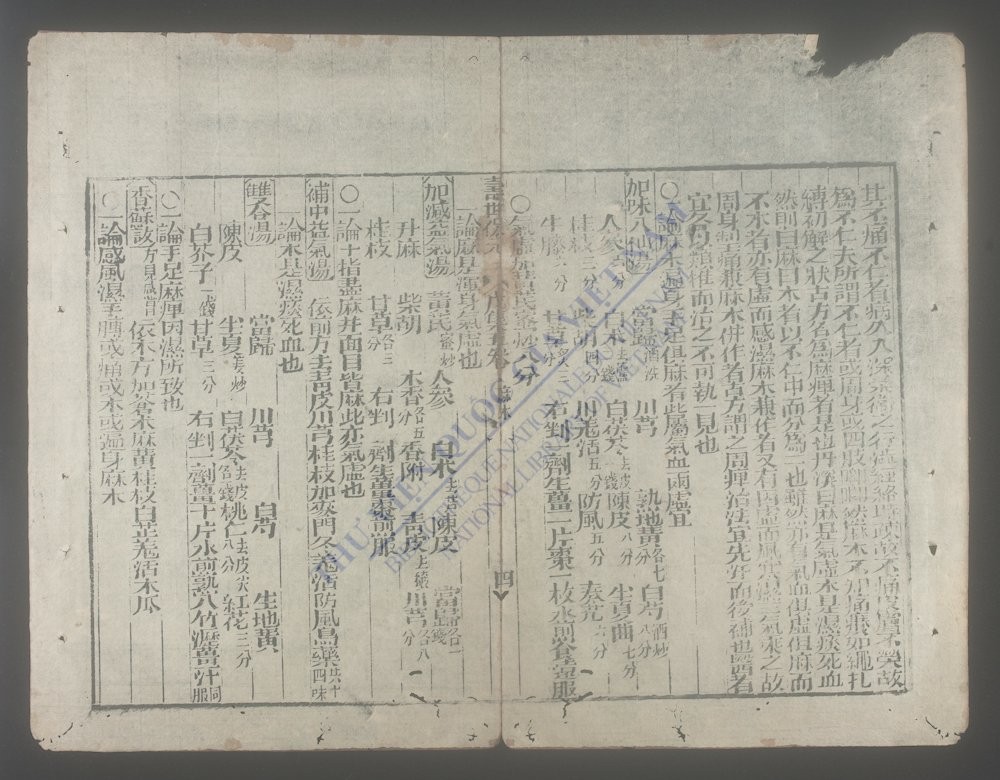 其不痛不仁者病久入深榮衛之行澁經絡時疎故不痛皮膚不榮故
為不仁夫所謂不仁者或周身或四肢唧唧然麻木不知痛癢如繩扎
縛初解之狀古方名為麻痺者是也丹溪曰麻是氣虛木是濕痰死血
然則曰麻曰木者以不仁中而分為二也雖然亦有氣血俱虛但麻而
不木者亦有虛而感濕麻木兼作者又有因虛而風寒濕三氣乘之故
周身掣痛麻木併作者古方謂之周痺治法宜先汗而後補也醫者
宜各類推而治之不可執一見也
○論麻木遍身手足俱麻者此屬氣血兩虛宜
加味八仙湯 當歸酒洗 川芎 熟地黃各七分 白芍八分酒炒
人參 白朮去蘆 白茯苓去皮一錢 陳皮八分 半夏曲七分
桂枝三分 柴胡四分 羌活五分 防風五分 秦艽六分
牛膝六分 甘草三分 右剉一劑生薑一片棗一枚水煎食遠服
○氣虛加黃芪蜜炒八分
壽世保元 戊集五卷 麻木 四
論麻是渾身氣虛也
加減益氣湯 黃芪蜜炒 人參 白朮去蘆 陳皮 當歸各一錢
升麻 柴胡 木香各五分 香附 青皮去穰 川芎各八分
桂枝 甘草各三分 右剉一劑生薑棗煎服
○一論十指盡麻并面目皆麻此亦氣虛也
補中益氣湯 依前方去青皮川芎桂枝加麥門冬羌活防風烏藥共十四味
論木是濕痰死血也
雙合湯 當歸 川芎 白芍 生地黃
陳皮 半夏姜炒 白茯苓去皮各一錢 桃仁去皮尖八分 紅花三分
白芥子一錢 甘草三分 右剉一劑薑十片水煎熟入竹瀝薑汁同服
○一論手足麻痺因濕所致也
香蘇散方見感冒 依本方加蒼朮麻黃桂枝白芷羌活木瓜
○一論感風濕手臂或痛或木或遍身麻木
THƯ VIỆN QUỐC GIA VIỆT NAM
BIBLIOTHEQUE NATIONALE DU VIETNAM
NATIONAL LIBRARY OF VIETNAM